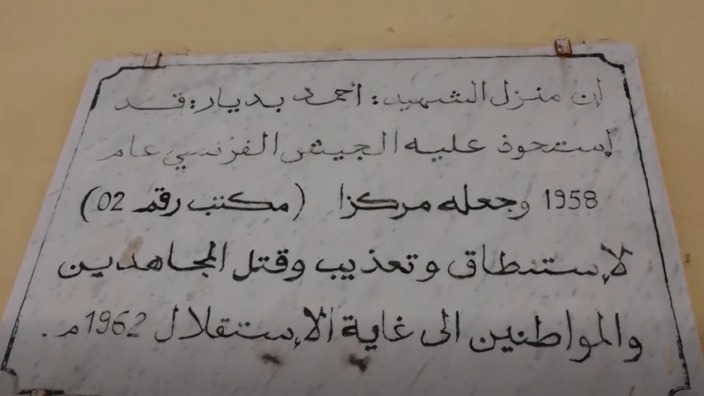 إن منزل الشهيد: أحمد بديار: قد
إستحوذ عليه الجيش الفرنسي عام
1958 وجعله مركزا (مكتب رقم 02)
لإستنطاق وتعذيب وقتل المجاهدين
والمواطنين الى غاية الإستقلال 1962م.